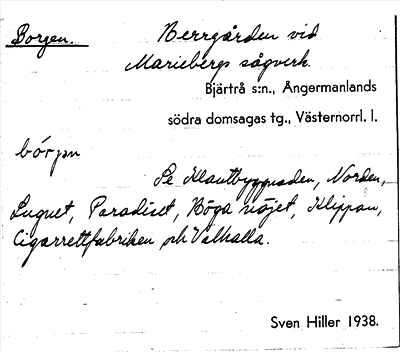 Borgen. Herrgården vid
Mariebergs sågverk.
Bjärtrå s:n., Ångermanlands
södra domsagas tg., Västernorrl. l.
bórjɒn
Se Klautbyggnaden, Norden,
Lugnet, Paradiset, Höga nöjet, Klippan,
Cigarrettfabriken och Valhalla.
Sven Hiller 1938.